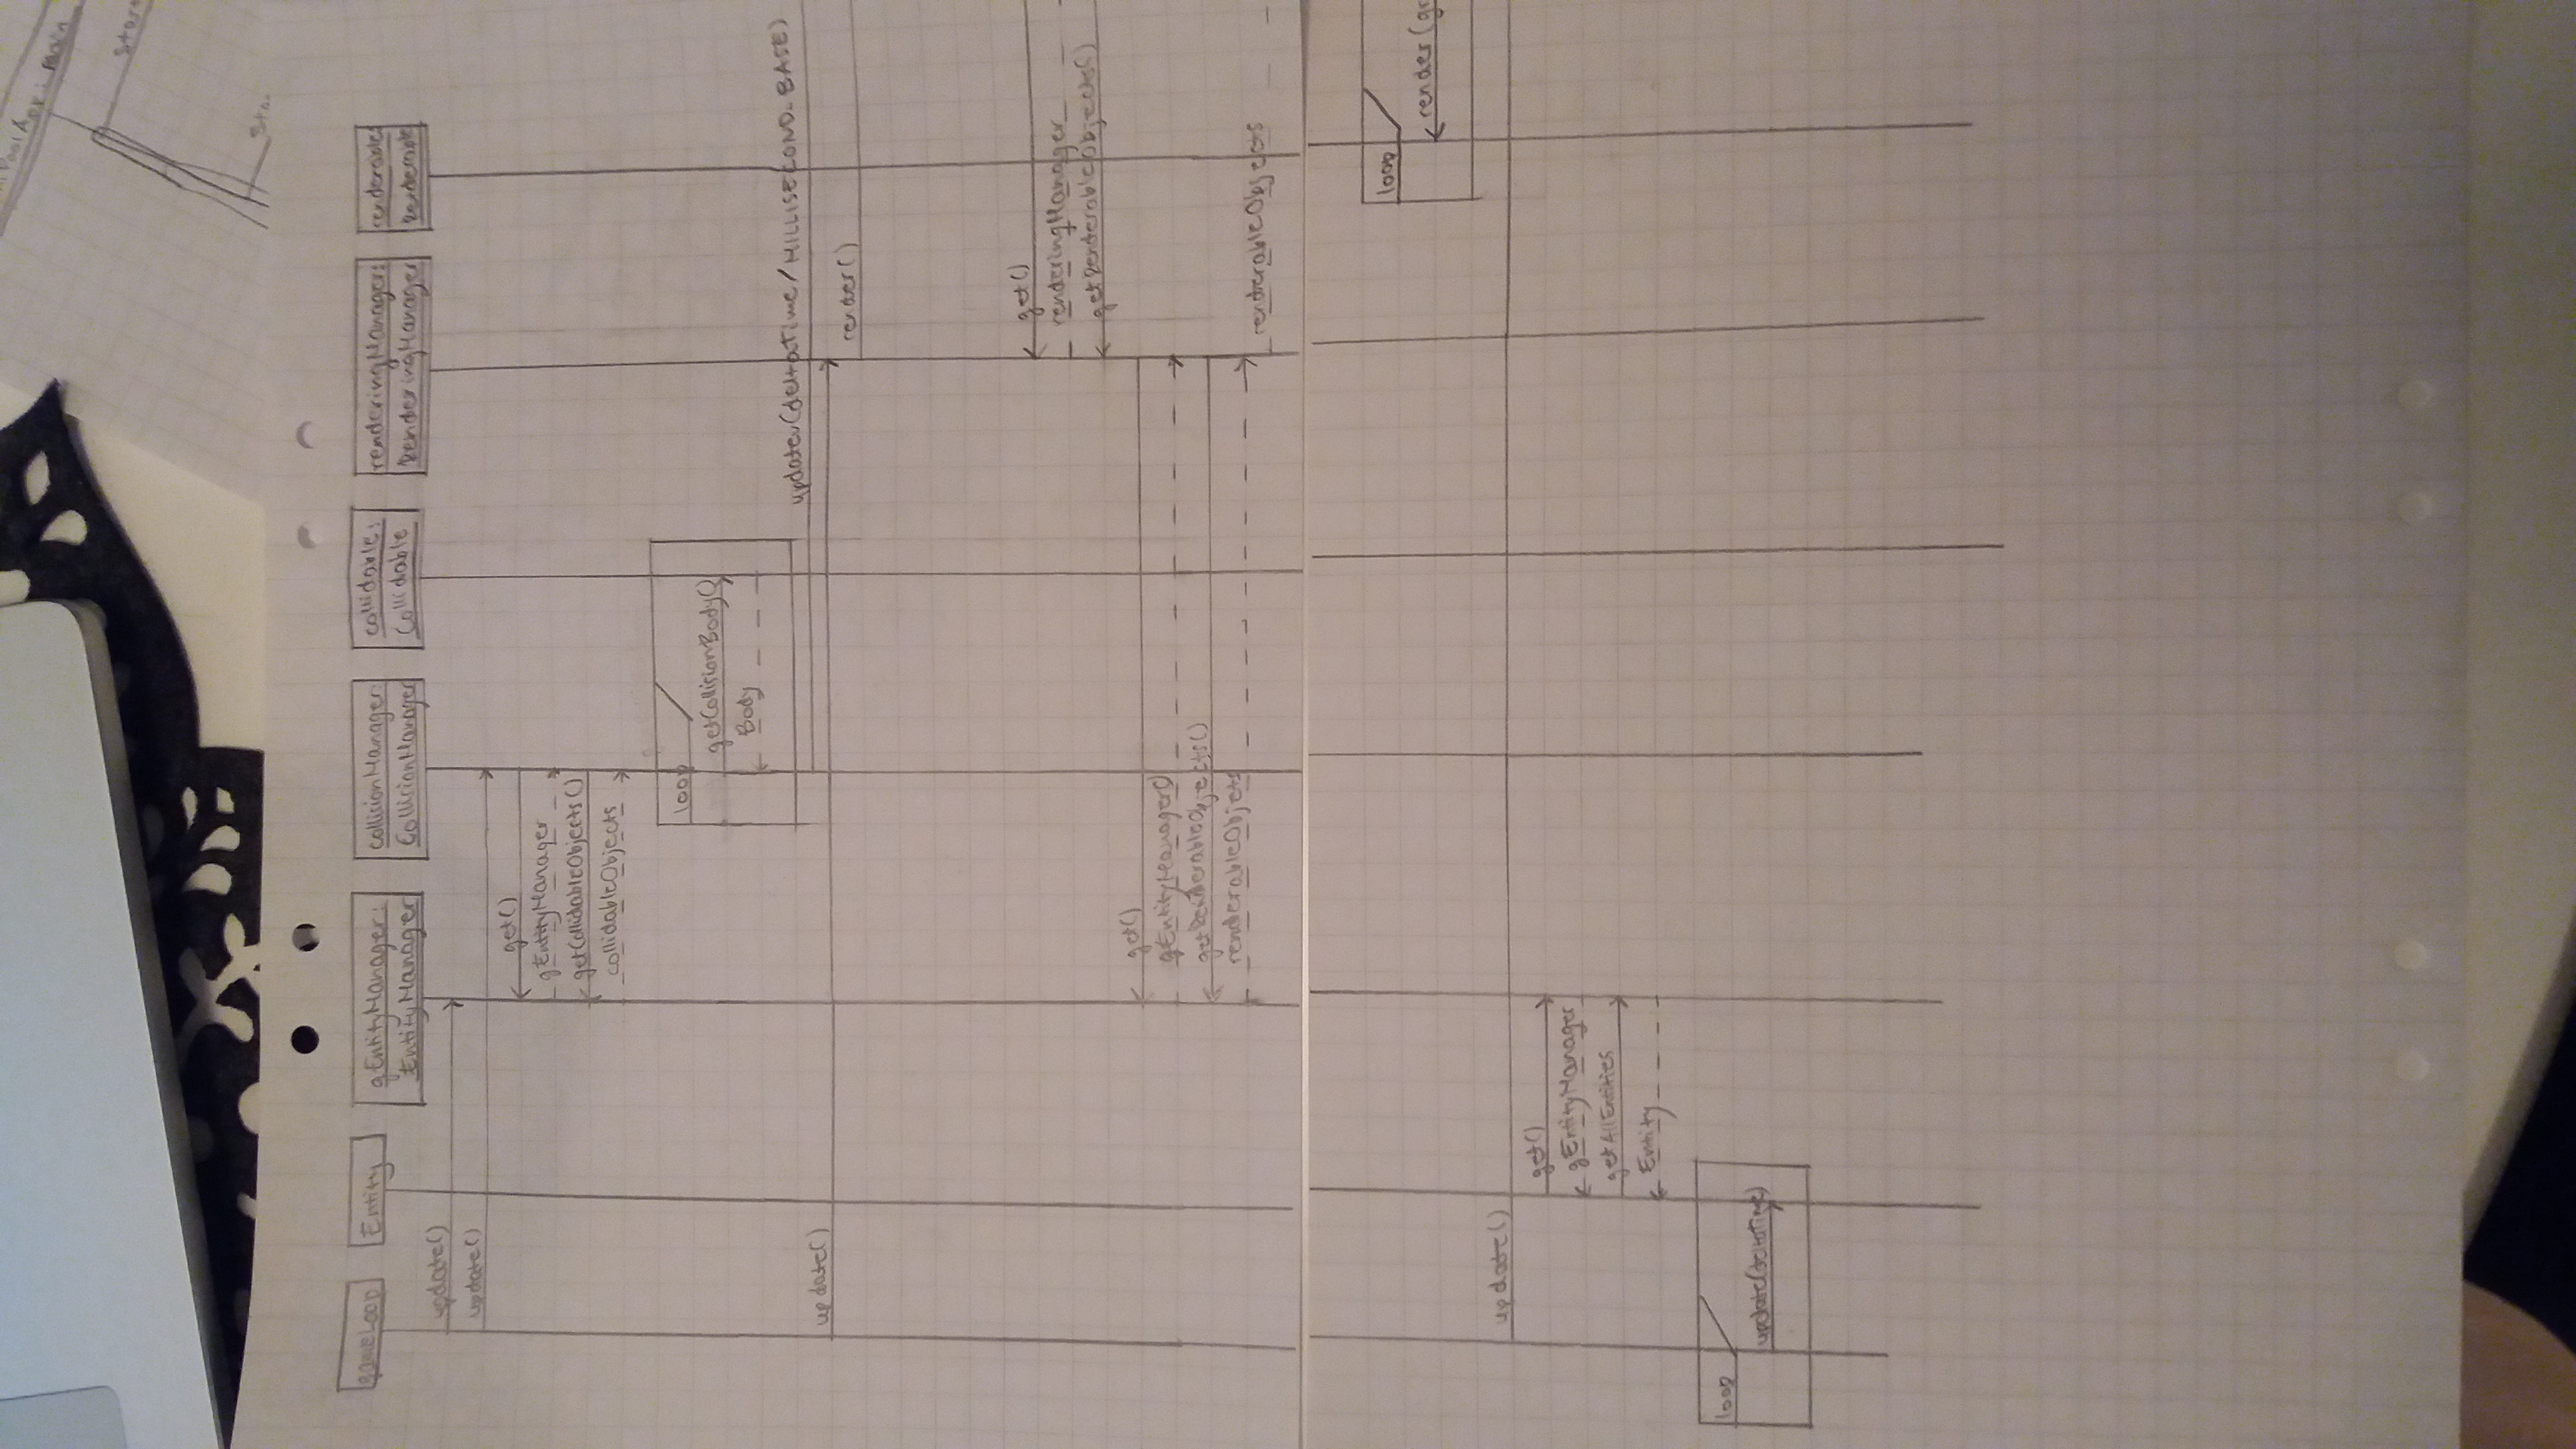 PoolApp: main
gameLoop
Entity
gEntityManager:
EntityManager
collisionManager:
CollisionManager
collidable:
Collidable
renderingManager:
RenderingManager
renderable:
Renderable
update()
update()
get()
gEntityManager
getCollidableObjects()
collidableObjects
loop
getCollisionBody()
Body
update(deltaTime/MILLISECOND_BASE)
update()
render()
get()
renderingManager
getRenderableObjects()
get()
gEntityManager()
getRenderableObjects()
renderableObjets
renderableObjects
loop
render(gr
update()
get()
gEntityManager
getAllEntities
Entity
loop
update(deltaTime)